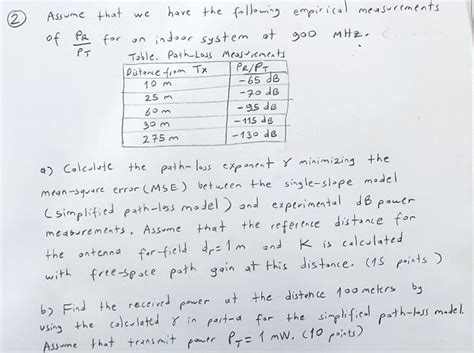 ② Assume that we have the following empirical measurements
of PR/PT for an indoor system at 900 MHz.
Table. Path-Loss Measurements
Distance from Tx PR/PT
10 m -65 dB
25 m -70 dB
60 m -95 dB
90 m -115 dB
275 m -130 dB
a) Calculate the path-loss exponent γ minimizing the
mean-square error (MSE) between the single-slope model
(simplified path-loss model) and experimental dB power
measurements. Assume that the reference distance for
the antenna far-field dr=1m and K is calculated
with free-space path gain at this distance. (15 points)
b) Find the received power at the distance 100 meters by
using the calculated γ in part-a for the simplified path-loss model.
Assume that transmit power PT = 1 mW. (10 points)